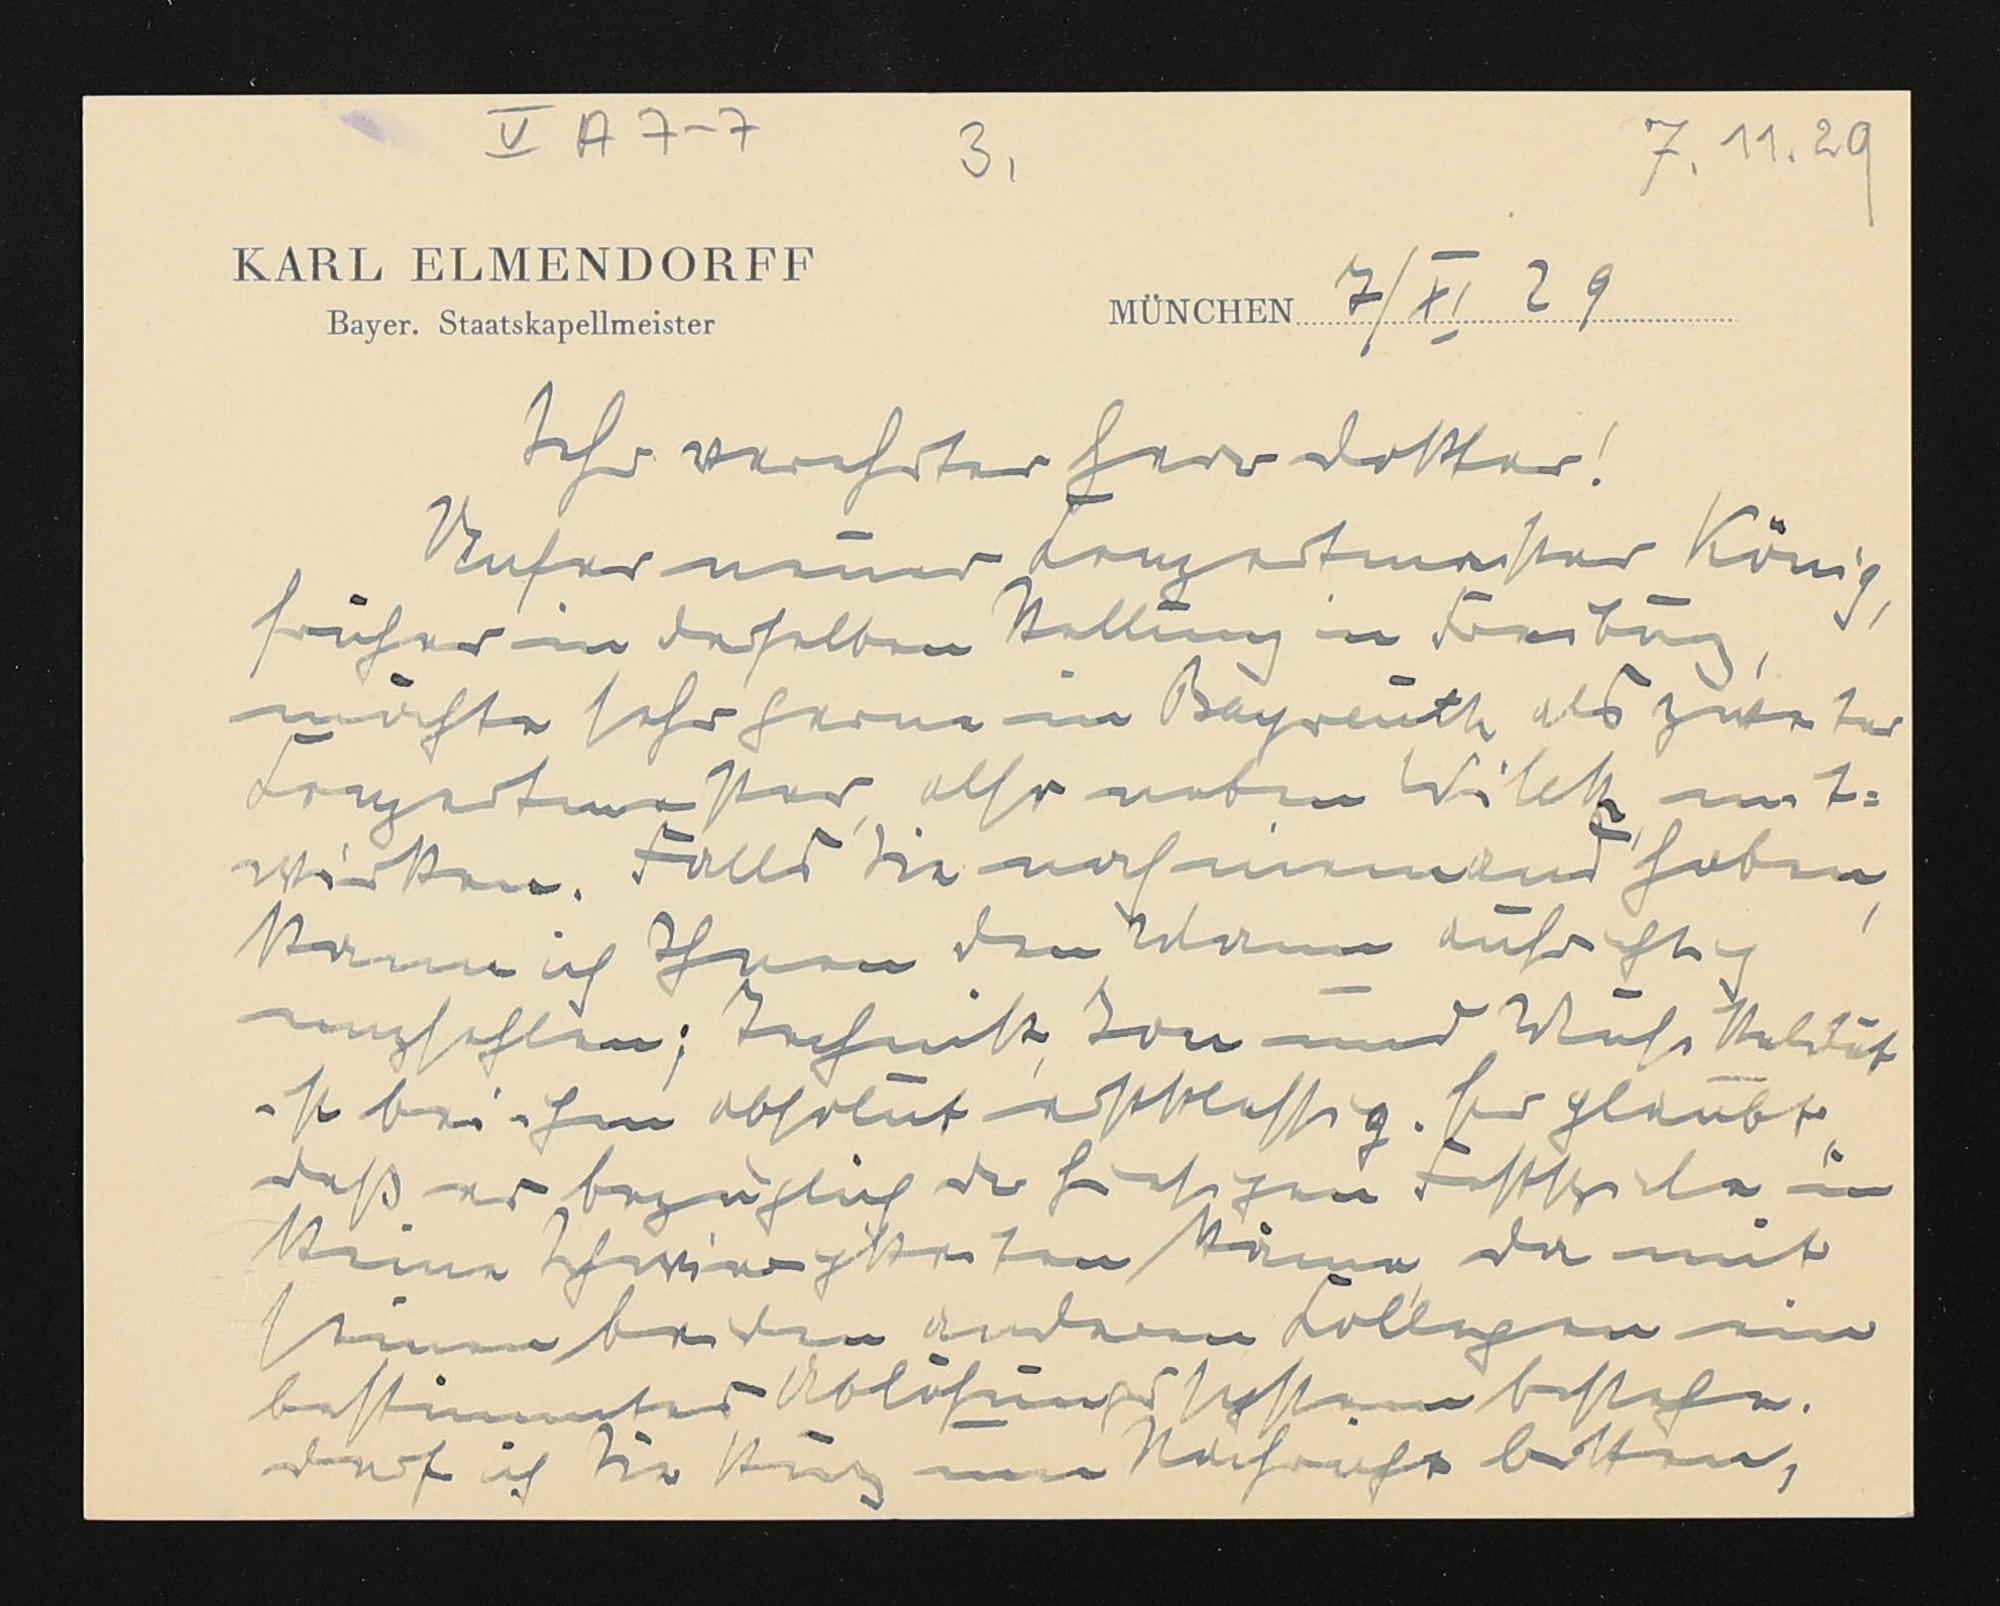 V A 7-7
3.
7.11.29
KARL ELMENDORFF
Bayer. Staatskapellmeister
MÜNCHEN 7/XI 29
Sehr verehrter Herr Doktor!
Unser neuer Konzertmeister König,
früher in derselben Stellung in Freiburg,
möchte sehr gerne in Bayreuth als zweiter
Konzertmeister, also neben Wilek, mit=
wirken. Falls Sie noch niemand haben,
kann ich Ihnen den Mann aufrichtig
empfehlen; Technik, Ton und Musikalität
ist bei ihm absolut erstklassig. Er glaubt,
daß er bezüglich der hiesigen Festspiele in
keine Schwierigkeiten käme, da mit
seinen beiden anderen Kollegen ein
bestimmtes Ablösungssystem bestehe.
Darf ich Sie kurz um Nachricht bitten,